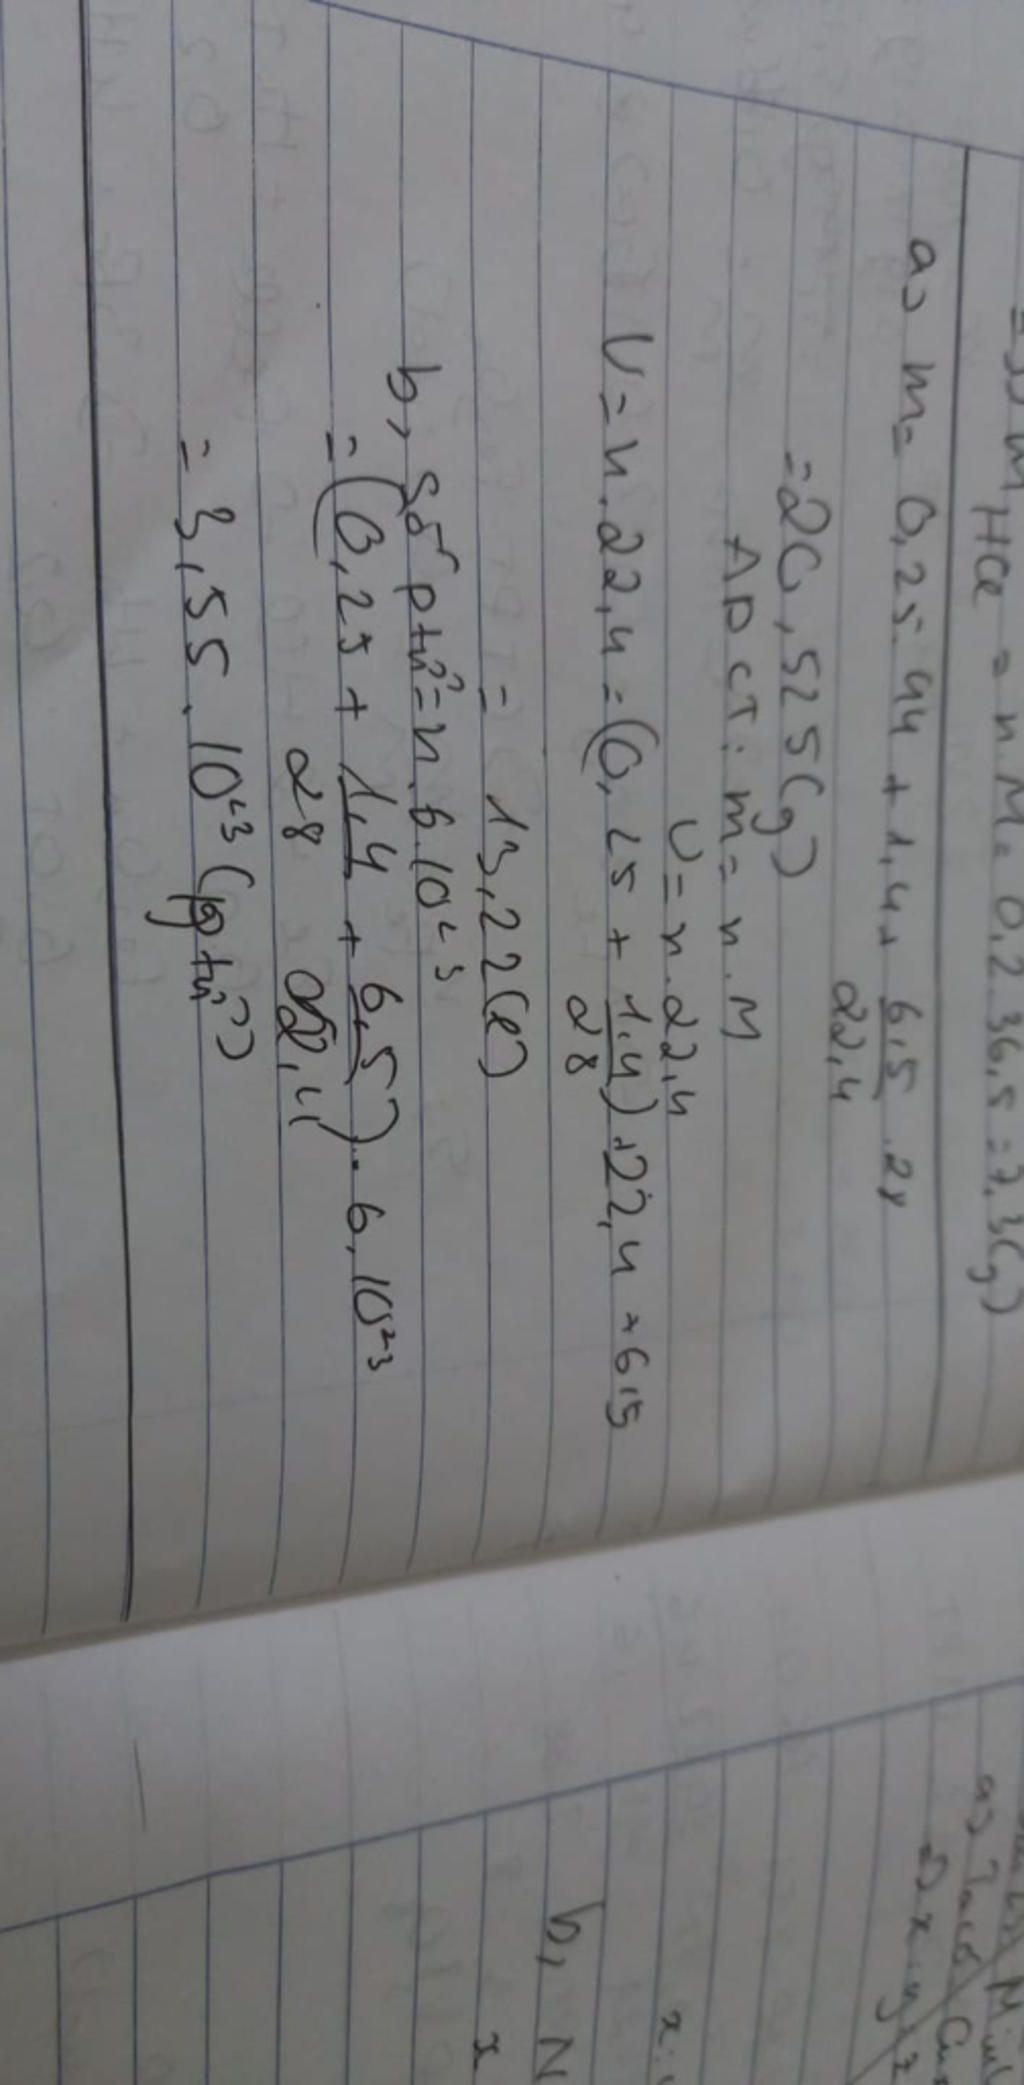 m HCl = n.M = 0,2.36,5 = 7,3(g)
a) m = 0,25.44 + 1,4 + 6,5/22,4 . 28
= 20,525(g)
ADCT: m = n.M
V = n.22,4
V = n.22,4 = (0,25 + 1,4/28).22,4 + 6,5
= 13,22(l)
b, số ptử = n.6.10²³
= (0,25 + 1,4/28 + 6,5/22,4).6.10²³
= 3,55.10²³ (ptử)
a)
b, N
x